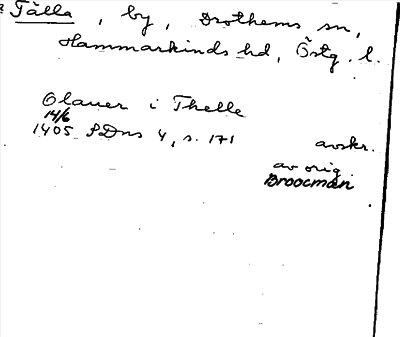 Tälla, by, Drothems sn,
Hammarkinds hd, Östg. l.
Olauer i Thelle
14/6
1405 SDns 4, s. 171
avskr.
av orig.
Broocman